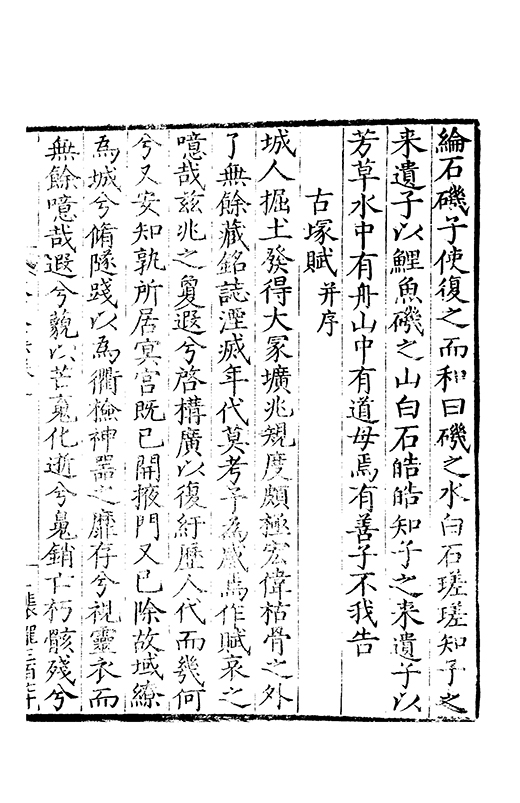 綸石磯子使復之而和曰磯之水白石瑳瑳知子之
来遺子以鯉魚磯之山白石皓皓知子之来遺子以
芳草水中有舟山中有道毋焉有善子不我告
古塚賦并序
城人掘土發得大冢壙兆規度頗極宏偉枯骨之外
了無餘藏銘誌湮滅年代莫考予為感焉作賦哀之
噫哉兹兆之敻遐兮啓構廣以復紆歷人代而幾何
兮又安知孰所居冥宫既已開掖門又已除故域繚
為城兮脩隧踐以為衢撿神器之靡存兮視靈衣而
無餘噫哉遐兮藐以芒䰟化逝兮鬼銷亡朽骸殘兮